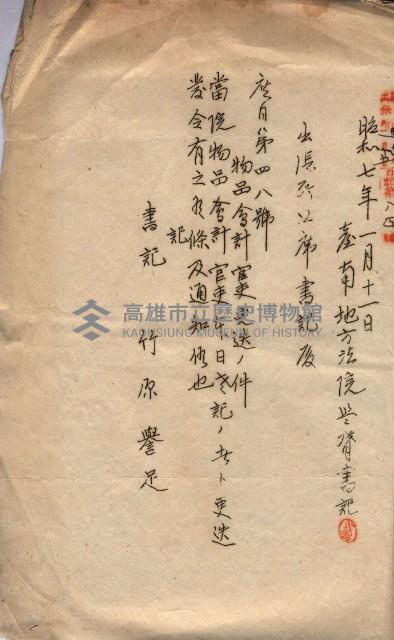 昭和七年一月十一日
臺南地方法院監督書記
出張所主席書記殿
庶日第四八號
物品會計官吏更迭ノ件
當院物品會計官吏本日左記ノ者ト更迭
發令有之候條及通知候也
記
書記 竹原譽足
高雄市立歷史博物館
KAOHSIUNG MUSEUM OF HISTORY